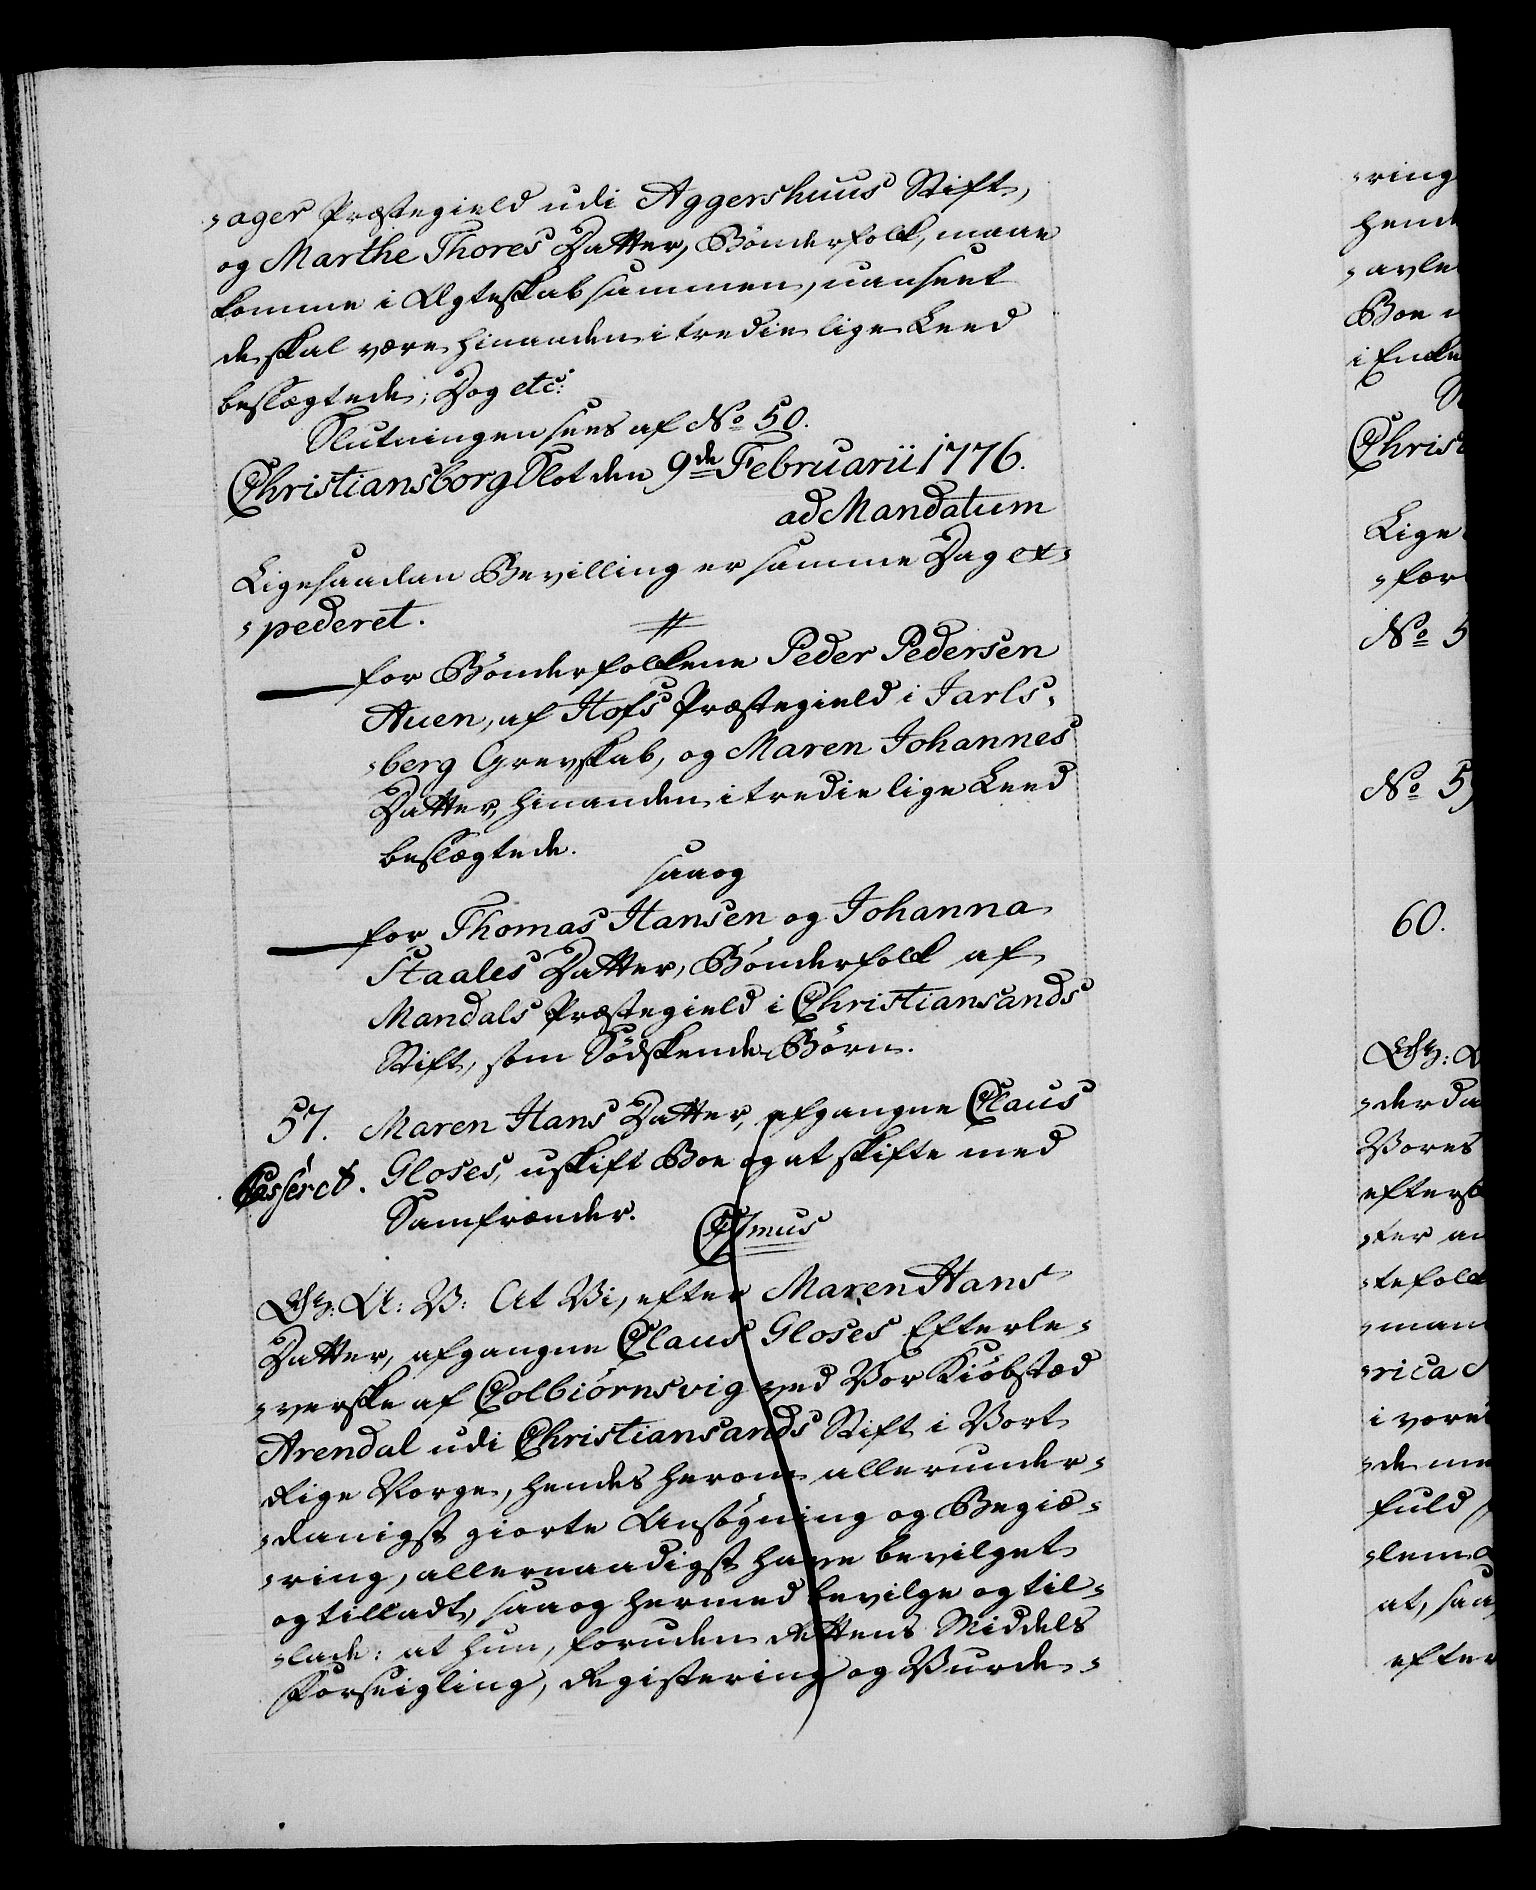 -ager Præstegield udi Aggershuus Stift,
og Marthe Thores Datter, Bönderfolk, maae
komme i Ægteskab sammen, uanseet
de skal være hinanden i tredie lige Leed
beslægtede; Dog etc:
Slutningen sees af No 50.
Christiansborg Slot den 9de Februarii 1776.
ad Mandatum
Ligesaadan Bevilling er samme Dag ex-
-pederet.
for Bönderfolkene Peder Pedersen
Auen, af Hofs Præstegield i Jarls-
-berg Grevskab, og Maren Johannes
Datter, hinanden i tredie lige Leed
beslægtede.
saaog
for Thomas Hansen og Johanna
Staales Datter, Bönderfolk af
Mandals Præstegield i Christiansands
Stift, som Södskende-Börn.
57. Maren Hans Datter, afgangne Claus
Casseret. Gloses, uskift Boe og at skifte med
Samfrænder.
C7mus
Ch: A: V: At Vi, efter Maren Hans
Datter, afgangne Claus Gloses Efterle-
-verske af Colbiörnsvig ved Vor Kiöbstæd
Arendal udi Christiansands Stift i Vort
Rige Norge, hendes herom allerunder-
-danigst giorte Ansögning og Begiæ-
-ring, allernaadigst have bevilget
og tilladt, saaog hermed bevilge og til-
-lade: at hun, foruden Rettens Middels
Forseigling, Registering og Vurde-
-ring
hende
-avle
Boe
i Enke
Christ
Lige
-fær
No 5
No 5
60.
-derda
Vores
efters
-ter
-tefolk
-man
-rica
i vore
-de me
fuld
-lem
at, saa
efter